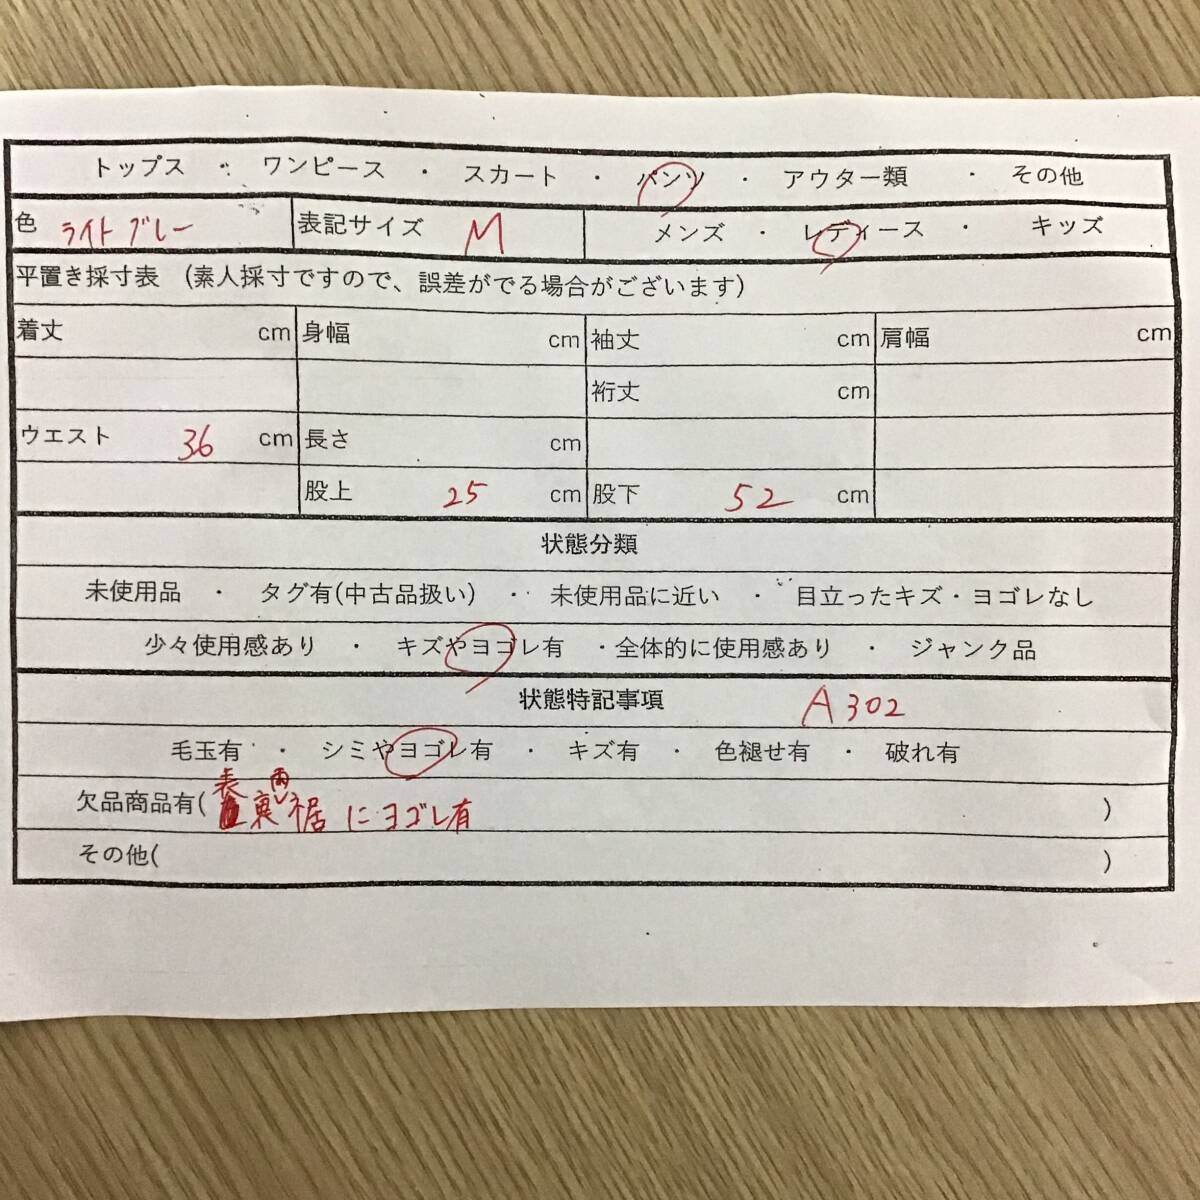 トップス ・ ワンピース ・ スカート ・ パンツ ・ アウター類 ・ その他
色 ライトグレー 表記サイズ M メンズ ・ レディース ・ キッズ
平置き採寸表 (素人採寸ですので、誤差がでる場合がございます)
着丈 cm 身幅 cm 袖丈 cm 肩幅 cm
裄丈 cm
ウエスト 36 cm 長さ cm
股上 25 cm 股下 52 cm
状態分類
未使用品 ・ タグ有(中古品扱い) ・ 未使用品に近い ・ 目立ったキズ・ヨゴレなし
少々使用感あり ・ キズやヨゴレ有 ・全体的に使用感あり ・ ジャンク品
状態特記事項 A302
毛玉有 ・ シミやヨゴレ有 ・ キズ有 ・ 色褪せ有 ・ 破れ有
欠品商品有(表裏両裾にヨゴレ有 )
その他( )